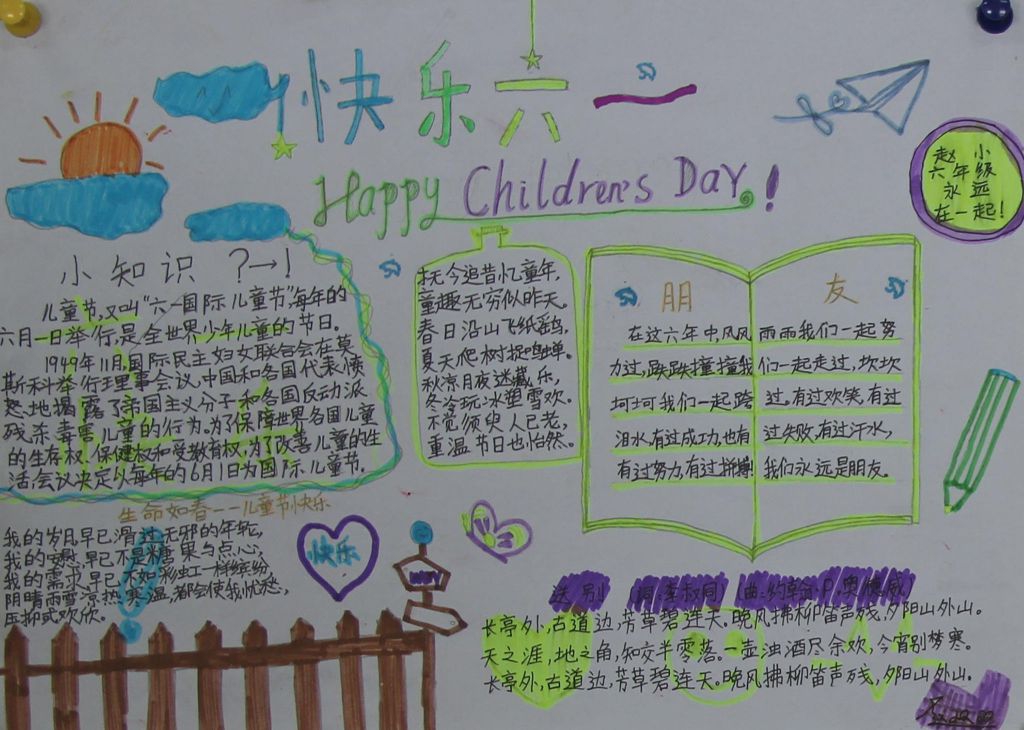 快乐六一
Happy Children's Day!
赵小
六年级
永远
在一起!
小知识 ?→!
儿童节,又叫“六一国际儿童节”,每年的
六月一日举行,是全世界少年儿童的节日。
1949年11月,国际民主妇女联合会在莫
斯科举行理事会议,中国和各国代表愤
怒地揭露了帝国主义分子和各国反动派
残杀毒害儿童的行为。为了保障世界各国儿童
的生存权、保健权和受教育权,为了改善儿童的生
活,会议决定以每年的6月1日为国际儿童节。
抚今追昔忆童年,
童趣无穷似昨天。
春日沿山飞纸鹞,
夏天爬树捉鸣蝉。
秋凉月夜迷藏乐,
冬冷玩冰塑雪欢。
不觉须臾人已老,
重温节日也怡然。
朋友
在这六年中,风风雨雨我们一起努
力过,跌跌撞撞我们一起走过,坎坎
坷坷我们一起跨过,有过欢笑,有过
泪水,有过成功,也有过失败,有过汗水,
有过努力,有过拼搏!我们永远是朋友。
生命如春——儿童节快乐
我的岁月,早已滑过无邪的年轮,
我的安慰,早已不是糖果与点心,
我的需求,早已不如彩虹一样缤纷
阴晴雨雪,凉热寒温,都会使我忧愁,
压抑或欢欣。
快乐
WAY
送别 (词:李叔同) (曲:约翰·P.奥德威)
长亭外,古道边,芳草碧连天。晚风拂柳笛声残,夕阳山外山。
天之涯,地之角,知交半零落。一壶浊酒尽余欢,今宵别梦寒。
长亭外,古道边,芳草碧连天。晚风拂柳笛声残,夕阳山外山。